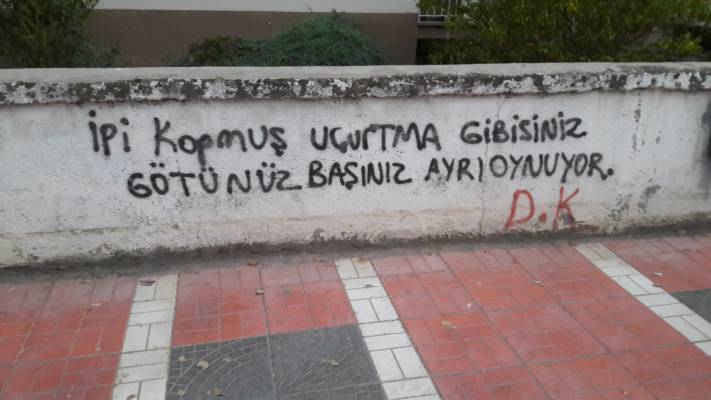 İPİ KOPMUŞ UÇURTMA GİBİSİNİZ
GÖTÜNÜZ BAŞINIZ AYRI OYNUYOR.
D.K